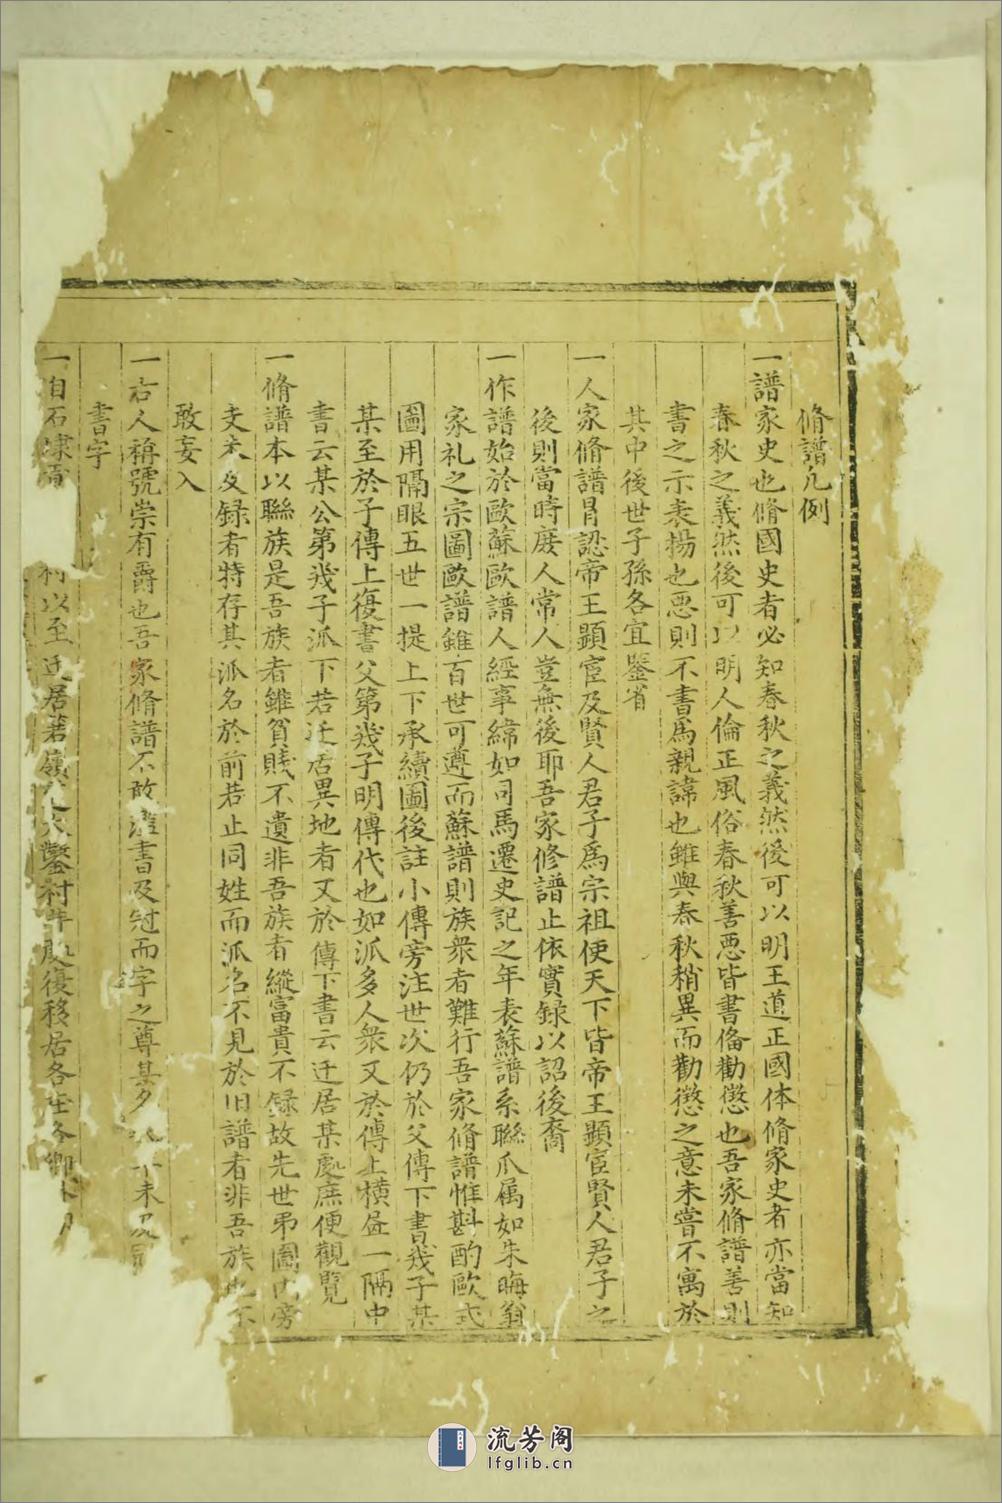 脩譜凡例
一譜家史也脩國史者必知春秋之義然後可以明王道正國体脩家史者亦當知
春秋之義然後可以明人倫正風俗春秋善悪皆書俻勸懲也吾家脩譜善則
書之示表揚也悪則不書爲親諱也雖與春秋稍異而勸懲之意未嘗不寓於
其中後世子孫各宜鑒省
一人家脩譜冐認帝王顕宦及賢人君子爲宗祖使天下皆帝王顕宦賢人君子之
後則當時庻人常人豈無後耶吾家修譜止依實録以詔後裔
一作譜始於歐蘇歐譜人經事緯如司馬遷史記之年表蘇譜系聯爪属如朱晦翁
家礼之宗圖歐譜雖百世可遵而蘇譜則族衆者難行吾家脩譜惟斟酌歐式
圖用隔眼五世一提上下承續圖後註小傳旁注世次仍於父傳下書幾子某
某至於子傳上復書父第幾子明傳代也如派多人衆又於傳上横㽵一隔中
書云某公第幾子派下若迁居異地者又於傳下書云迁居某處庶便觀覽
一脩譜本以聯族是吾族者雖貧賤不遺非吾族者縱富貴不録故先世弔圖内旁
支未及録者特存其派名於前若止同姓而派名不見於旧譜者非吾族也不
敢妄入
一古人稱號崇有爵也吾家脩譜不敢濫書及冠而字之尊其 未及
書字
一自石埭 村以至迁居若嶺 大鑿村 後移居各 各鄉
流芳阁
lfglib.cn